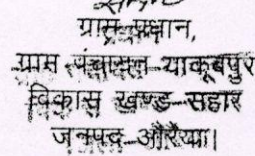 ग्राम प्रधान,
ग्राम पंचायत याकूबपुर
विकास खण्ड सहार
जनपद औरैया।